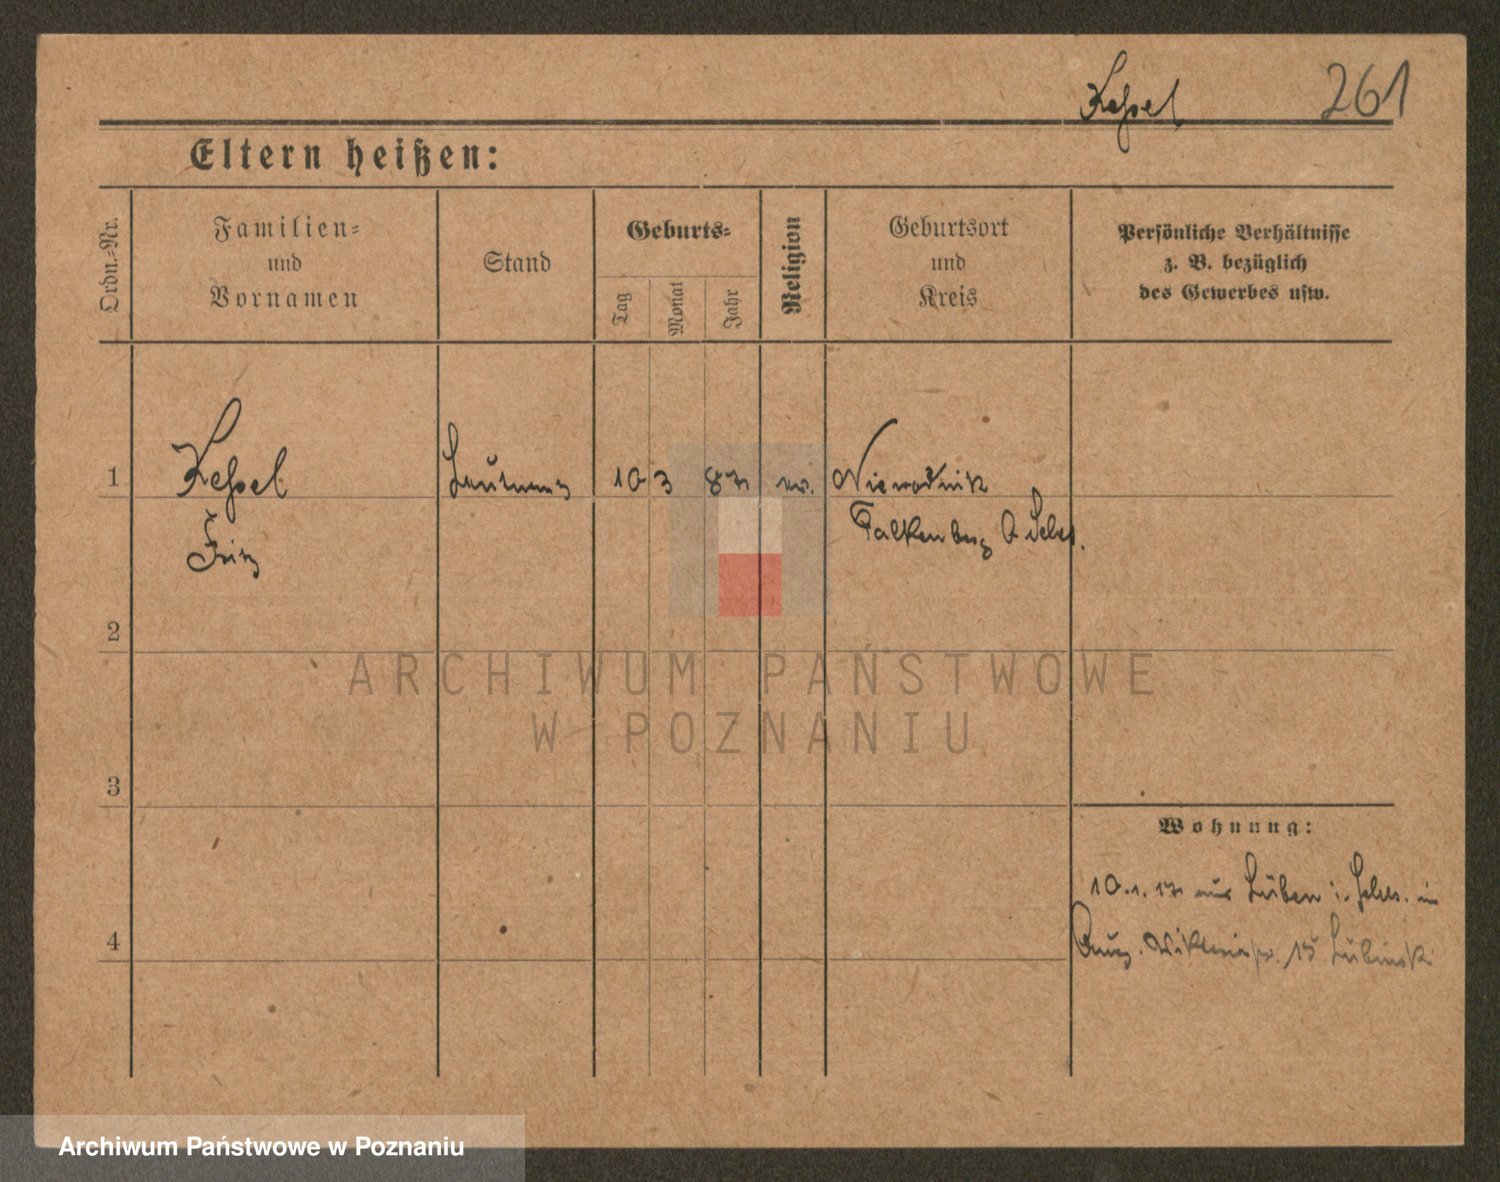 Kessel 261
Eltern heißen:
Ordn.-Nr.
Familien-
und
Vornamen
Stand
Geburts-
Tag
Monat
Jahr
Religion
Geburtsort
und
Kreis
Persönliche Verhältnisse
z. B. bezüglich
des Gewerbes usw.
1 Kessel Leutnant 10 3 87 ev. Niewodnik
Fritz Falkenberg O Schles.
2
3
4
Wohnung:
10.1.17 aus Lüben i. Schles. in
Aug. Viktoriastr. 15
ARCHIWUM PAŃSTWOWE
W POZNANIU
Archiwum Państwowe w Poznaniu